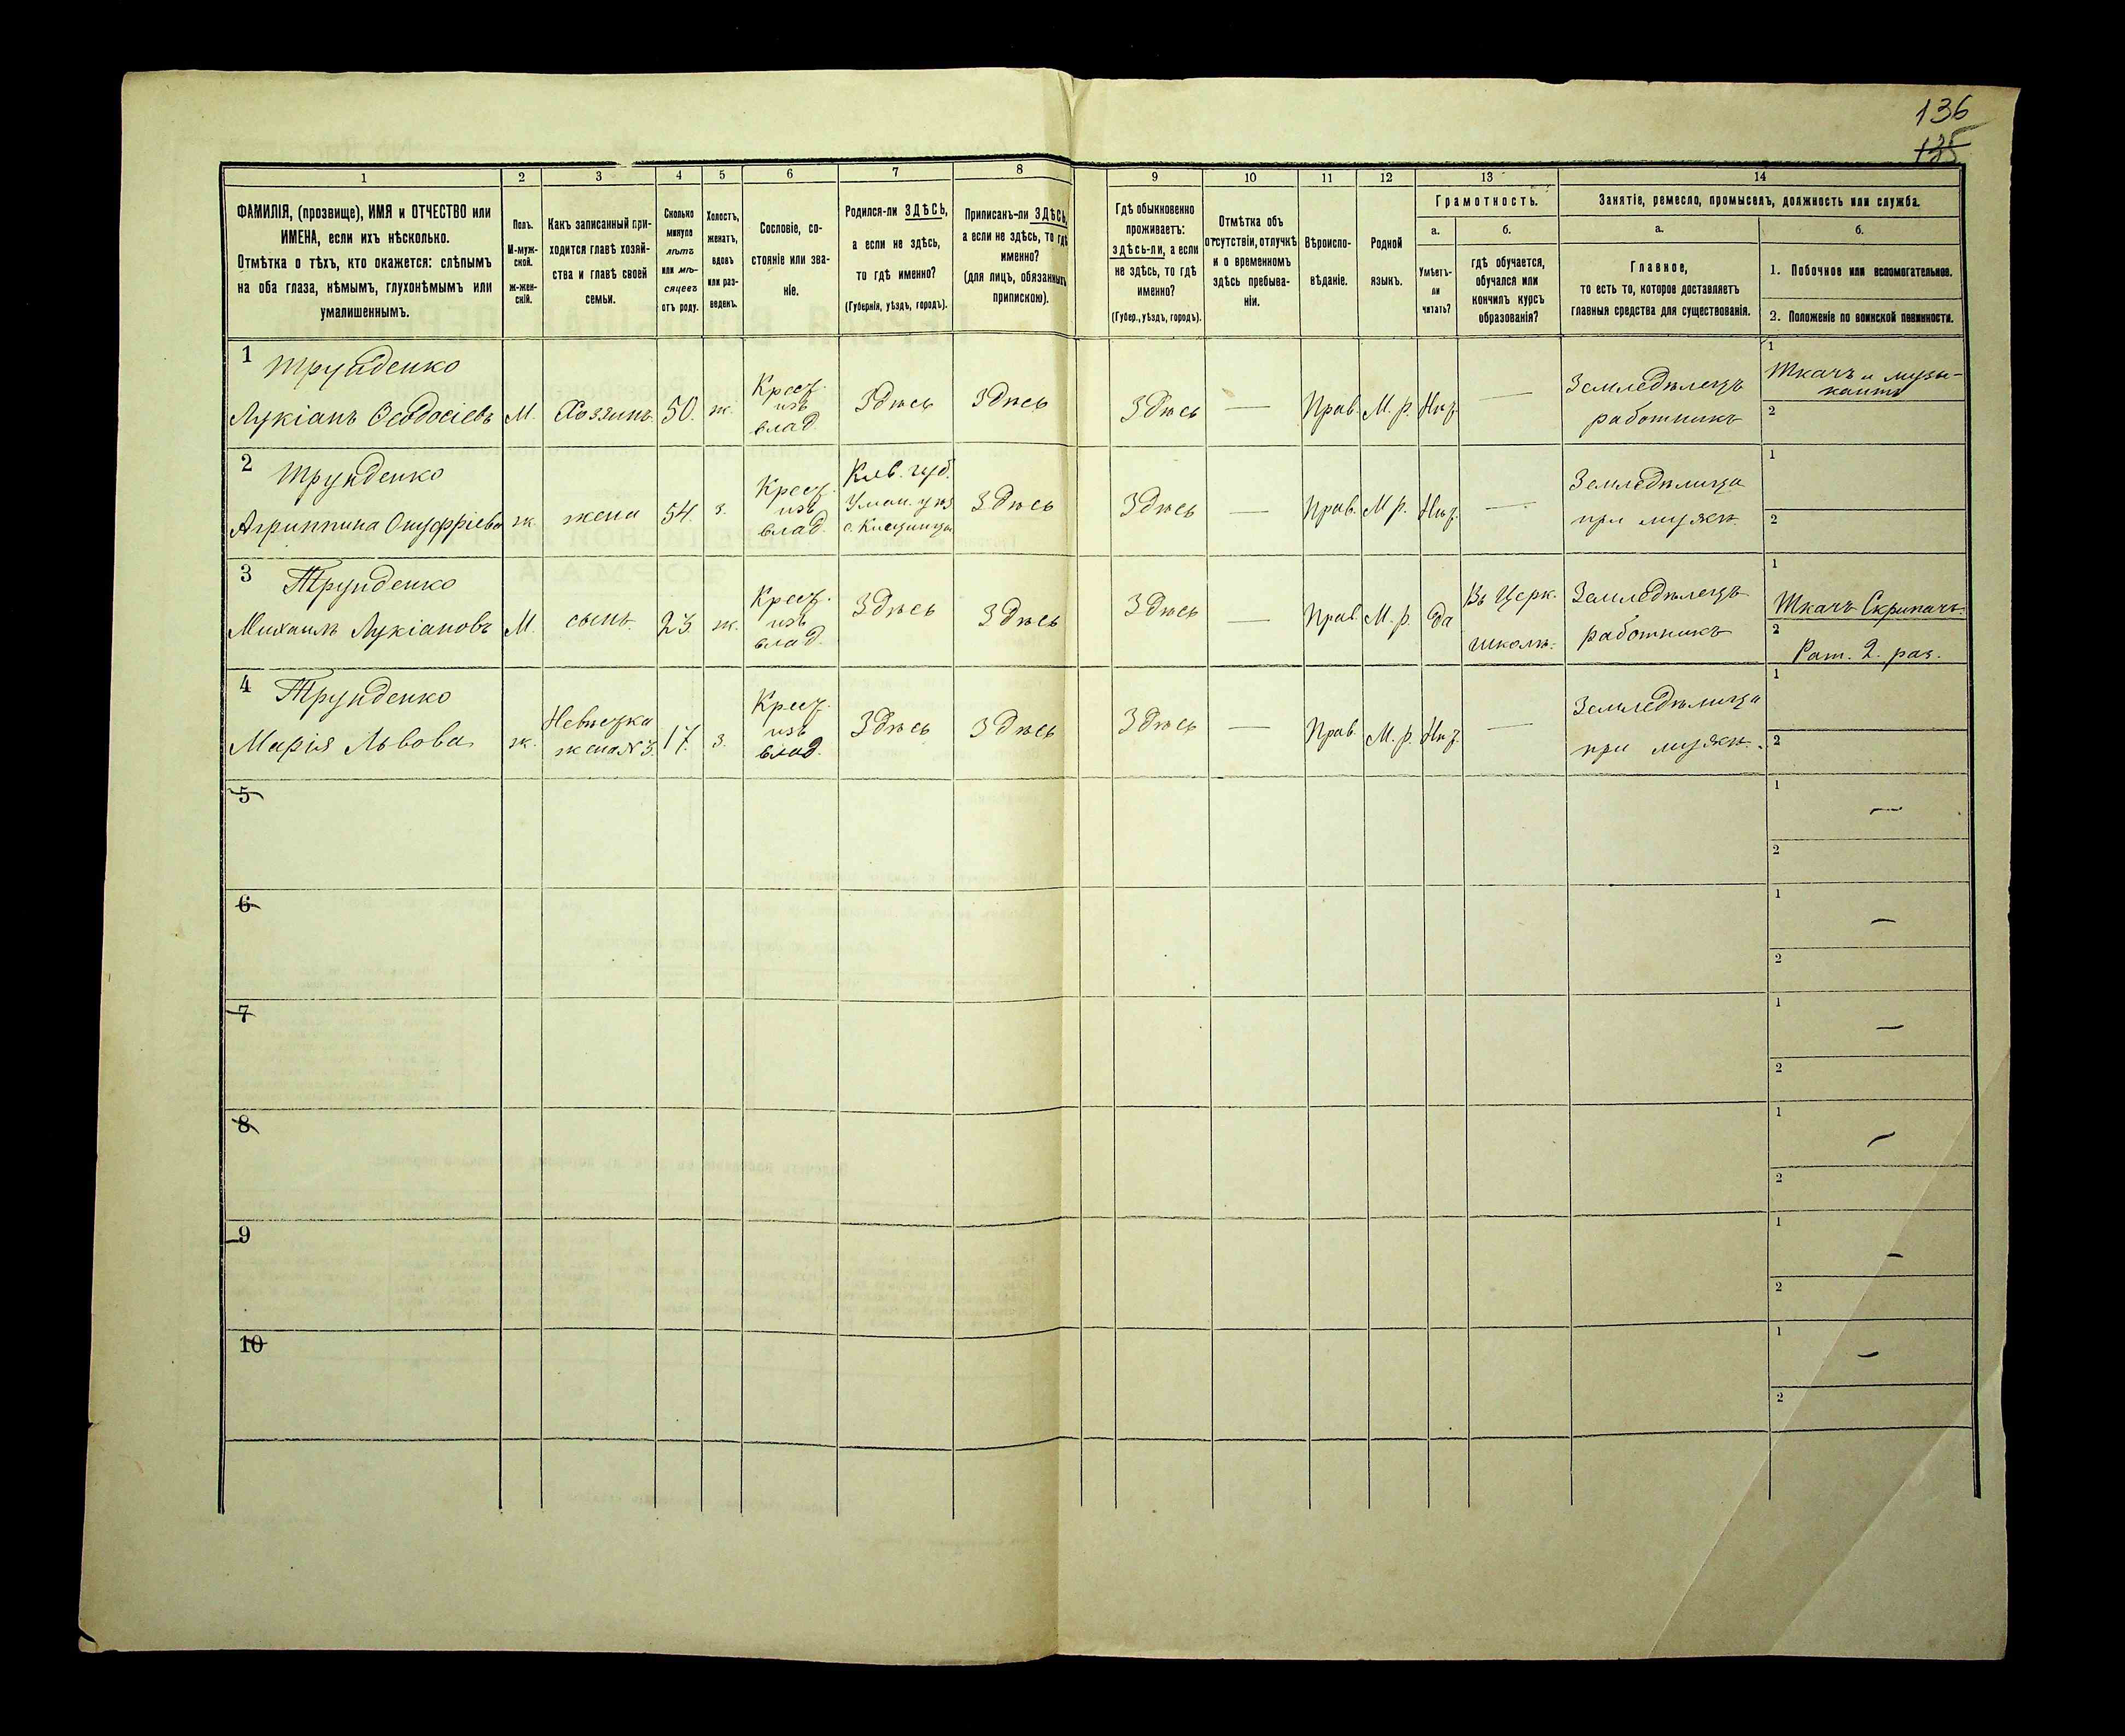 136
135
1
2
3
4
5
6
7
8
9
10
11
12
13
14
ФАМИЛІЯ, (прозвище), ИМЯ и ОТЧЕСТВО или
ИМЕНА, если ихъ нѣсколько.
Отмѣтка о тѣхъ, кто окажется: слѣпымъ
на оба глаза, нѣмымъ, глухонѣмымъ или
умалишеннымъ.
Полъ.
М-муж-
ской.
ж-жен-
скій.
Какъ записанный при-
ходится главѣ хозяй-
ства и главѣ своей
семьи.
Сколько
минуло
лѣтъ
или мѣ-
сяцевъ
отъ роду.
Холостъ,
женатъ,
вдовъ
или раз-
веденъ.
Сословіе, со-
стояніе или зва-
ніе.
Родился-ли ЗДѢСЬ,
а если не здѣсь,
то гдѣ именно?
(Губернія, уѣздъ, городъ).
Приписанъ-ли ЗДѢСЬ,
а если не здѣсь, то гдѣ
именно?
(для лицъ, обязанныхъ
припискою).
Гдѣ обыкновенно
проживаетъ:
здѣсь-ли, а если
не здѣсь, то гдѣ
именно?
(Губер., уѣздъ, городъ).
Отмѣтка объ
отсутствіи, отлучкѣ
и о временномъ
здѣсь пребыва-
ніи.
Вѣроиспо-
вѣданіе.
Родной
языкъ.
Грамотность.
а.
Умѣетъ-
ли
читать?
б.
гдѣ обучается,
обучался или
кончилъ курсъ
образованія?
Занятіе, ремесло, промыселъ, должность или служба.
а.
Главное,
то есть то, которое доставляетъ
главныя средства для существованія.
б.
1. Побочное или вспомогательное.
2. Положеніе по воинской повинности.
1
Трунденко
Лукіанъ Ѳеодосіевъ
М.
Хозяинъ.
50.
ж.
Крест.
изъ
влад.
Здѣсь
Здѣсь
Здѣсь
—
Прав.
М. р.
Нѣт.
—
Земледѣлецъ
работникъ
1
Ткачъ и музы-
кантъ
2
2
Трунденко
Агриппина Онуфріева
ж.
жена
54.
з.
Крест.
изъ
влад.
Кіев. губ.
Уман. уѣз.
Здѣсь
Здѣсь
—
Прав.
М. р.
Нѣт.
—
Земледѣлица
при мужѣ.
1
2
3
Трунденко
Михаилъ Лукіановъ
М.
сынъ.
23.
ж.
Крест.
изъ
влад.
Здѣсь
Здѣсь
Здѣсь
—
Прав.
М. р.
да
Въ Церк.
школѣ.
Земледѣлецъ
работникъ
1
Ткачъ Скрипачъ.
2
Рат. 2. раз.
4
Трунденко
Марія Львова
ж.
Невѣстка
жена №3.
17.
з.
Крест.
изъ
влад.
Здѣсь
Здѣсь
Здѣсь
—
Прав.
М. р.
Нѣт.
—
Земледѣлица
при мужѣ.
1
2
5
1
—
2
6
1
—
2
7
1
—
2
8
1
—
2
9
1
—
2
10
1
—
2